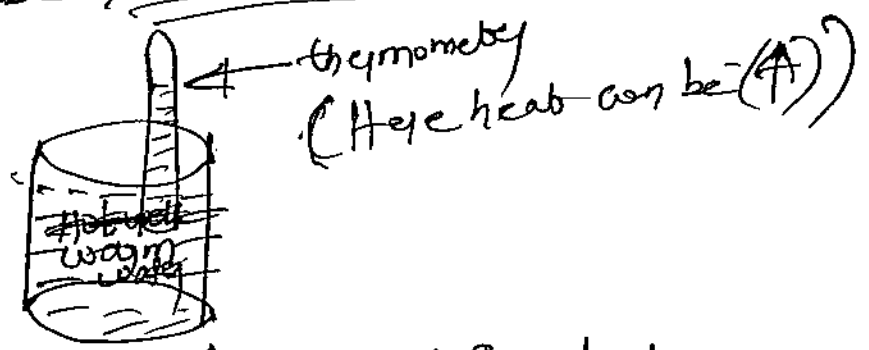 thermometer
(Here heat can be (↑))
warm
water